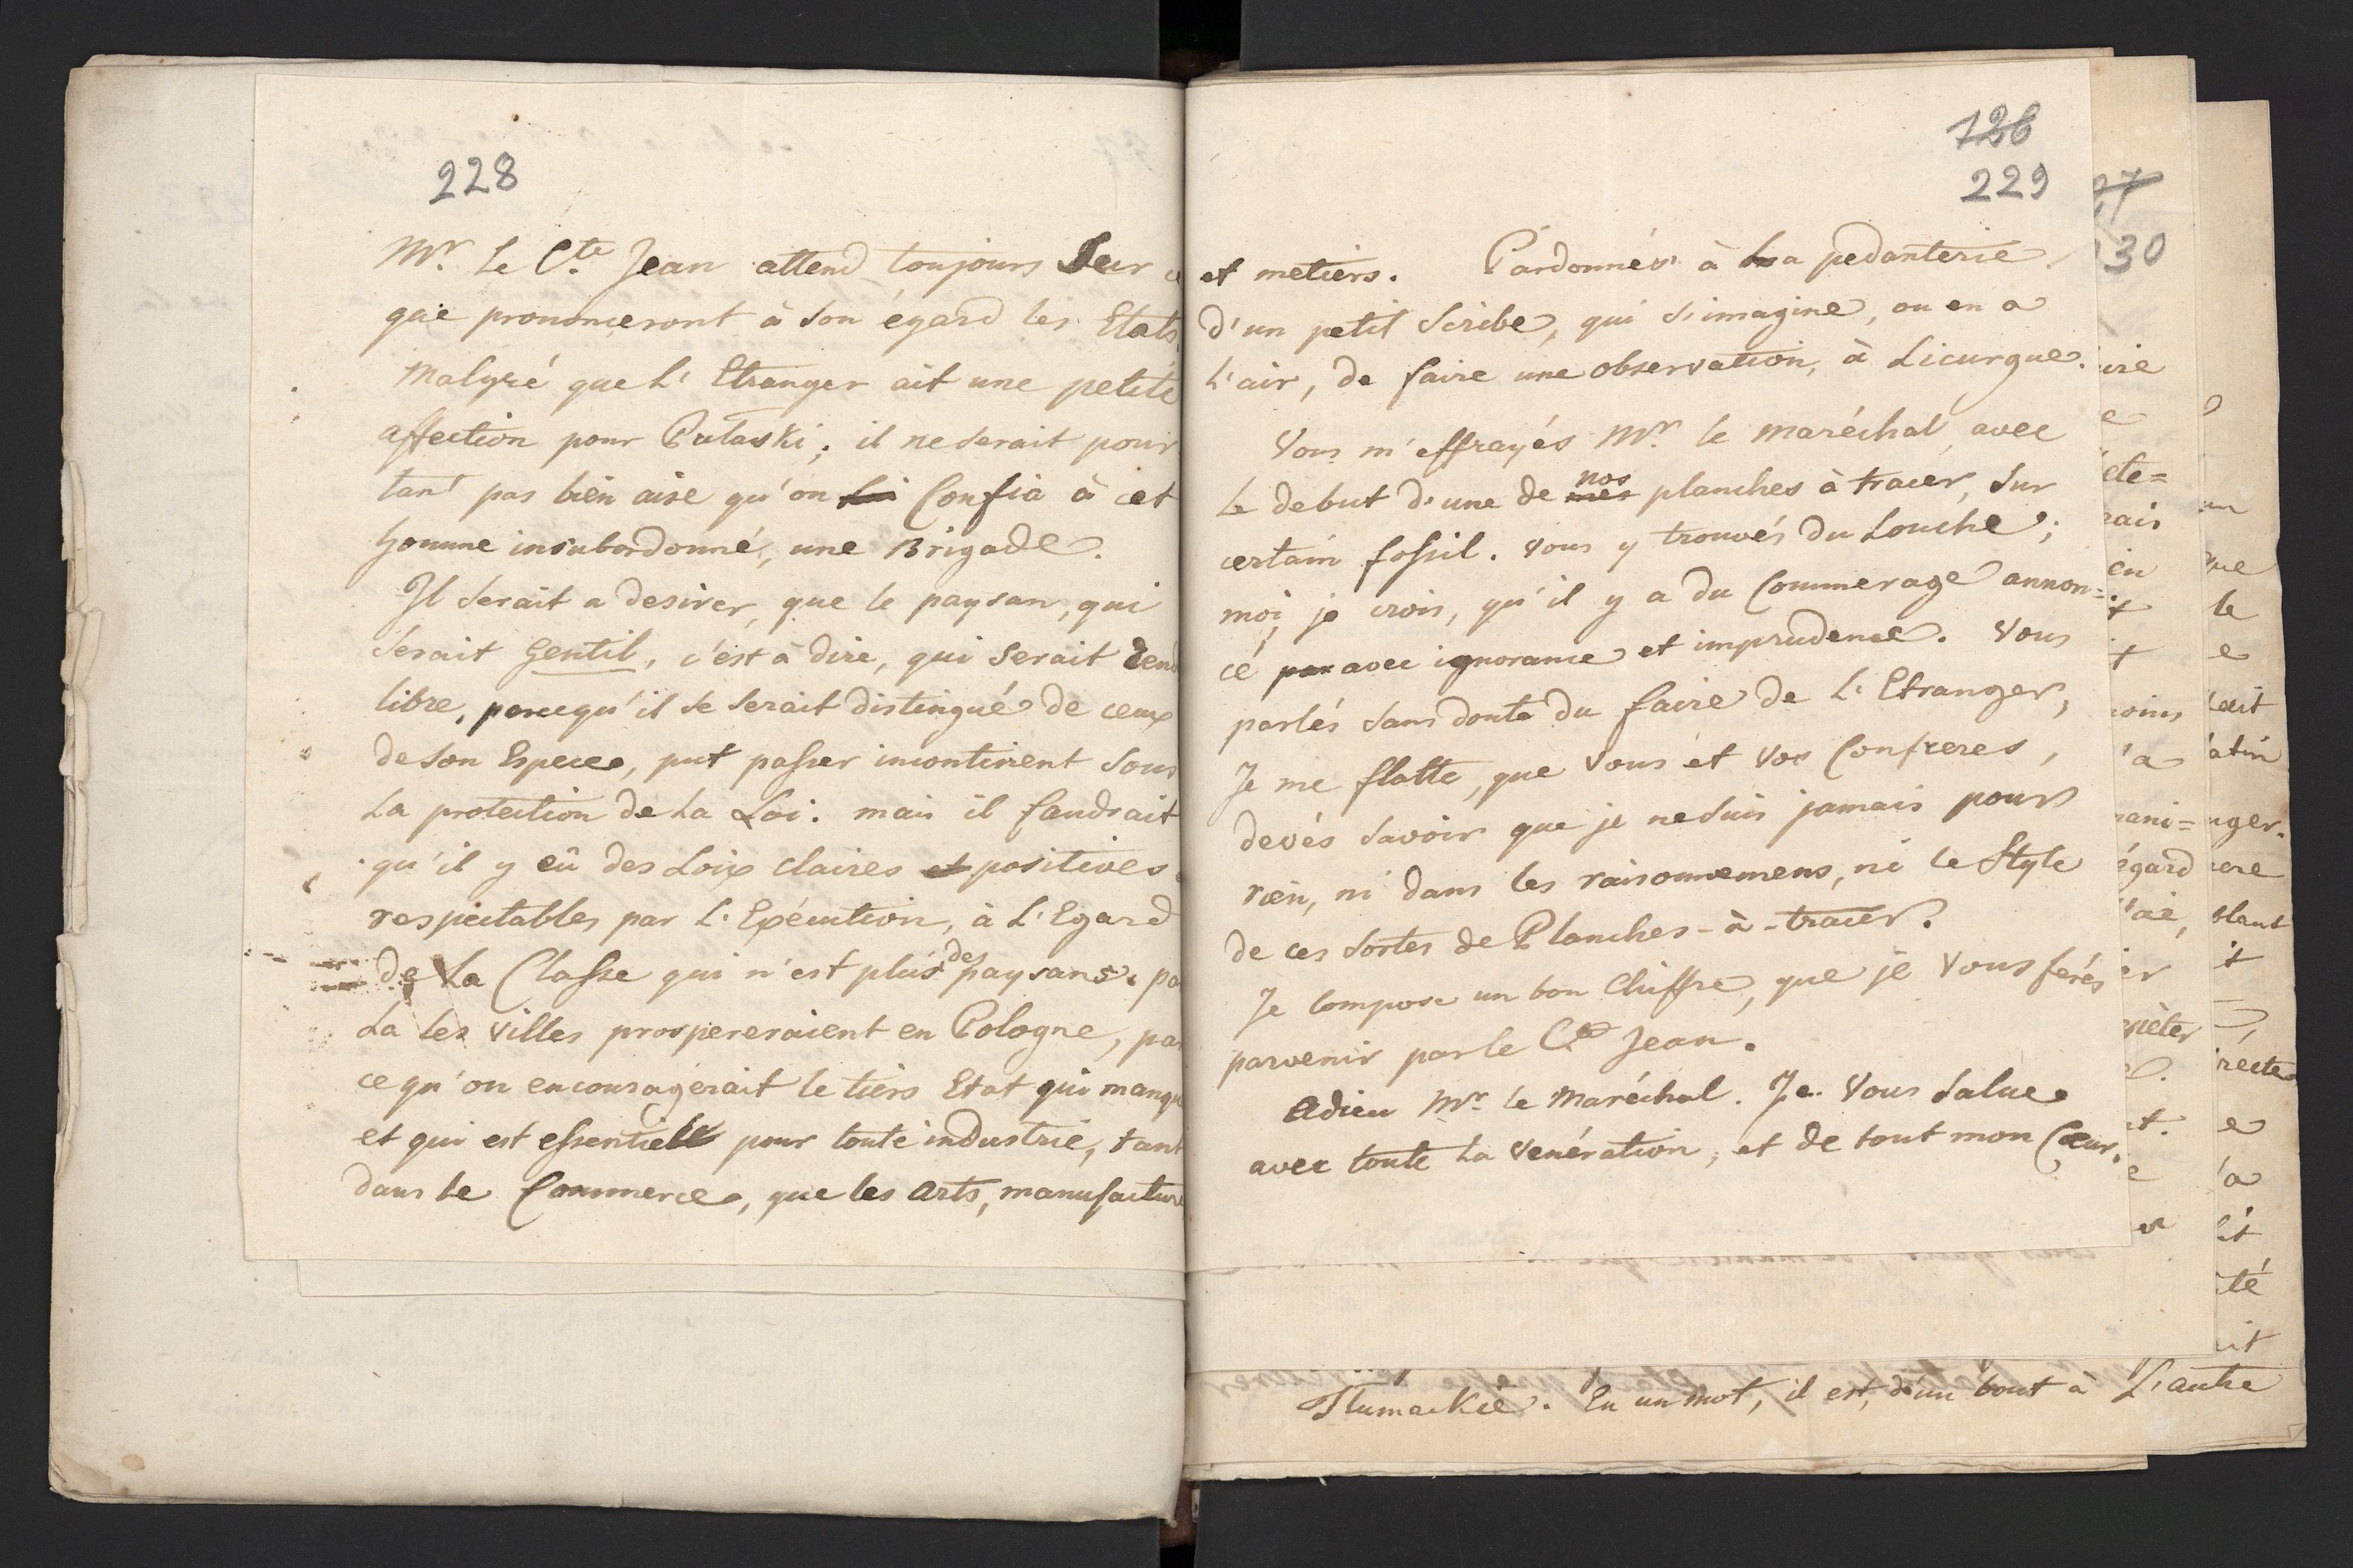 228
Mr. Le Cte. Jean attend toujours Sur
que prononceront à son égard les Etats
malgré que L'Etranger ait une petite
affection pour Pulaski; il ne serait pour
tant pas bien aise qu'on lui Confia à cet
homme insubordonné, une Brigade.
Il serait a desirer, que le paysan, qui
serait Gentil, c'est à dire, qui serait
libre, parcequ'il se serait distingué de ceux
de son Espece, put passer incontinent sous
La protection de La Loi. mais il faudrait
qu'il y eû des Loix claires et positives
respectables par L'Exécution, à L'Egard
de La Classe qui n'est plus des paysans. pa
La les villes prospereraient en Pologne, pa
ce qu'on encouragerait le tiers Etat qui manqu
et qui est essentiell pour toute industrie, tant
dans le Commerce, que les arts, manufacture
128
229
et metiers. Pardonnés à la pedanterie
d'un petit scribe, qui s'imagine, ou en a
L'air, de faire une observation, à Licurgue.
Vous m'effrayés Mr. le maréchal, avec
Le debut d'une de mes nos planches à tracer, sur
certain fossil. vous y trouvés du Louche;
moi, je crois, qu'il y a du Commerage annon=
cé par avec ignorance et imprudence. Vous
parlés sans doute du faire de L'Etranger,
Je me flatte, que vous et vos Confreres,
devés savoir que je ne suis jamais pour
rien, ni dans les raisonnemens, ni le Style
de ces sortes de Planches-à-tracer.
Je compose un bon Chiffre, que je vous ferés
parvenir par le Cte Jean.
Adieu Mr. le Maréchal. Je Vous salue
avec toute La venération, et de tout mon Cœur.
27
30
ire
e
ete=
ais
en
oins
a
mani=
égard
aié,
er
eter
et.
e
un
que
le
e
ait
atin
nger.
ere
blant
it
recte
e
a
it
té
it
Tlumackie. En un mot, il est, d'un bout à L'autre